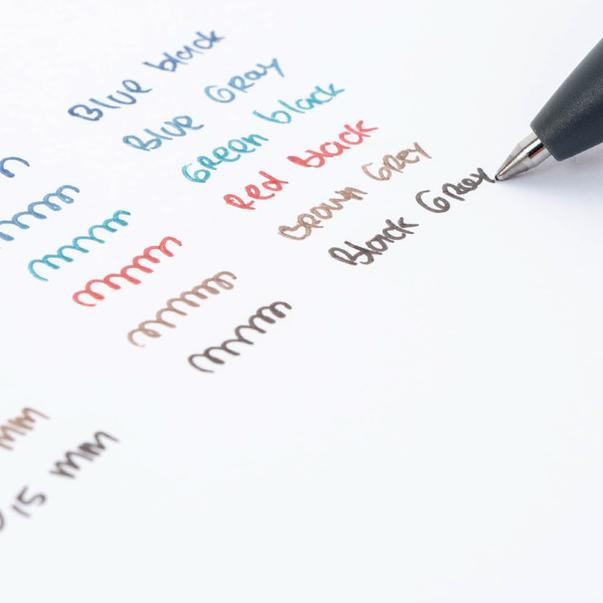 Blue black
Blue Gray
Green black
Red black
Brown Grey
Black Gray
mm
15 mm